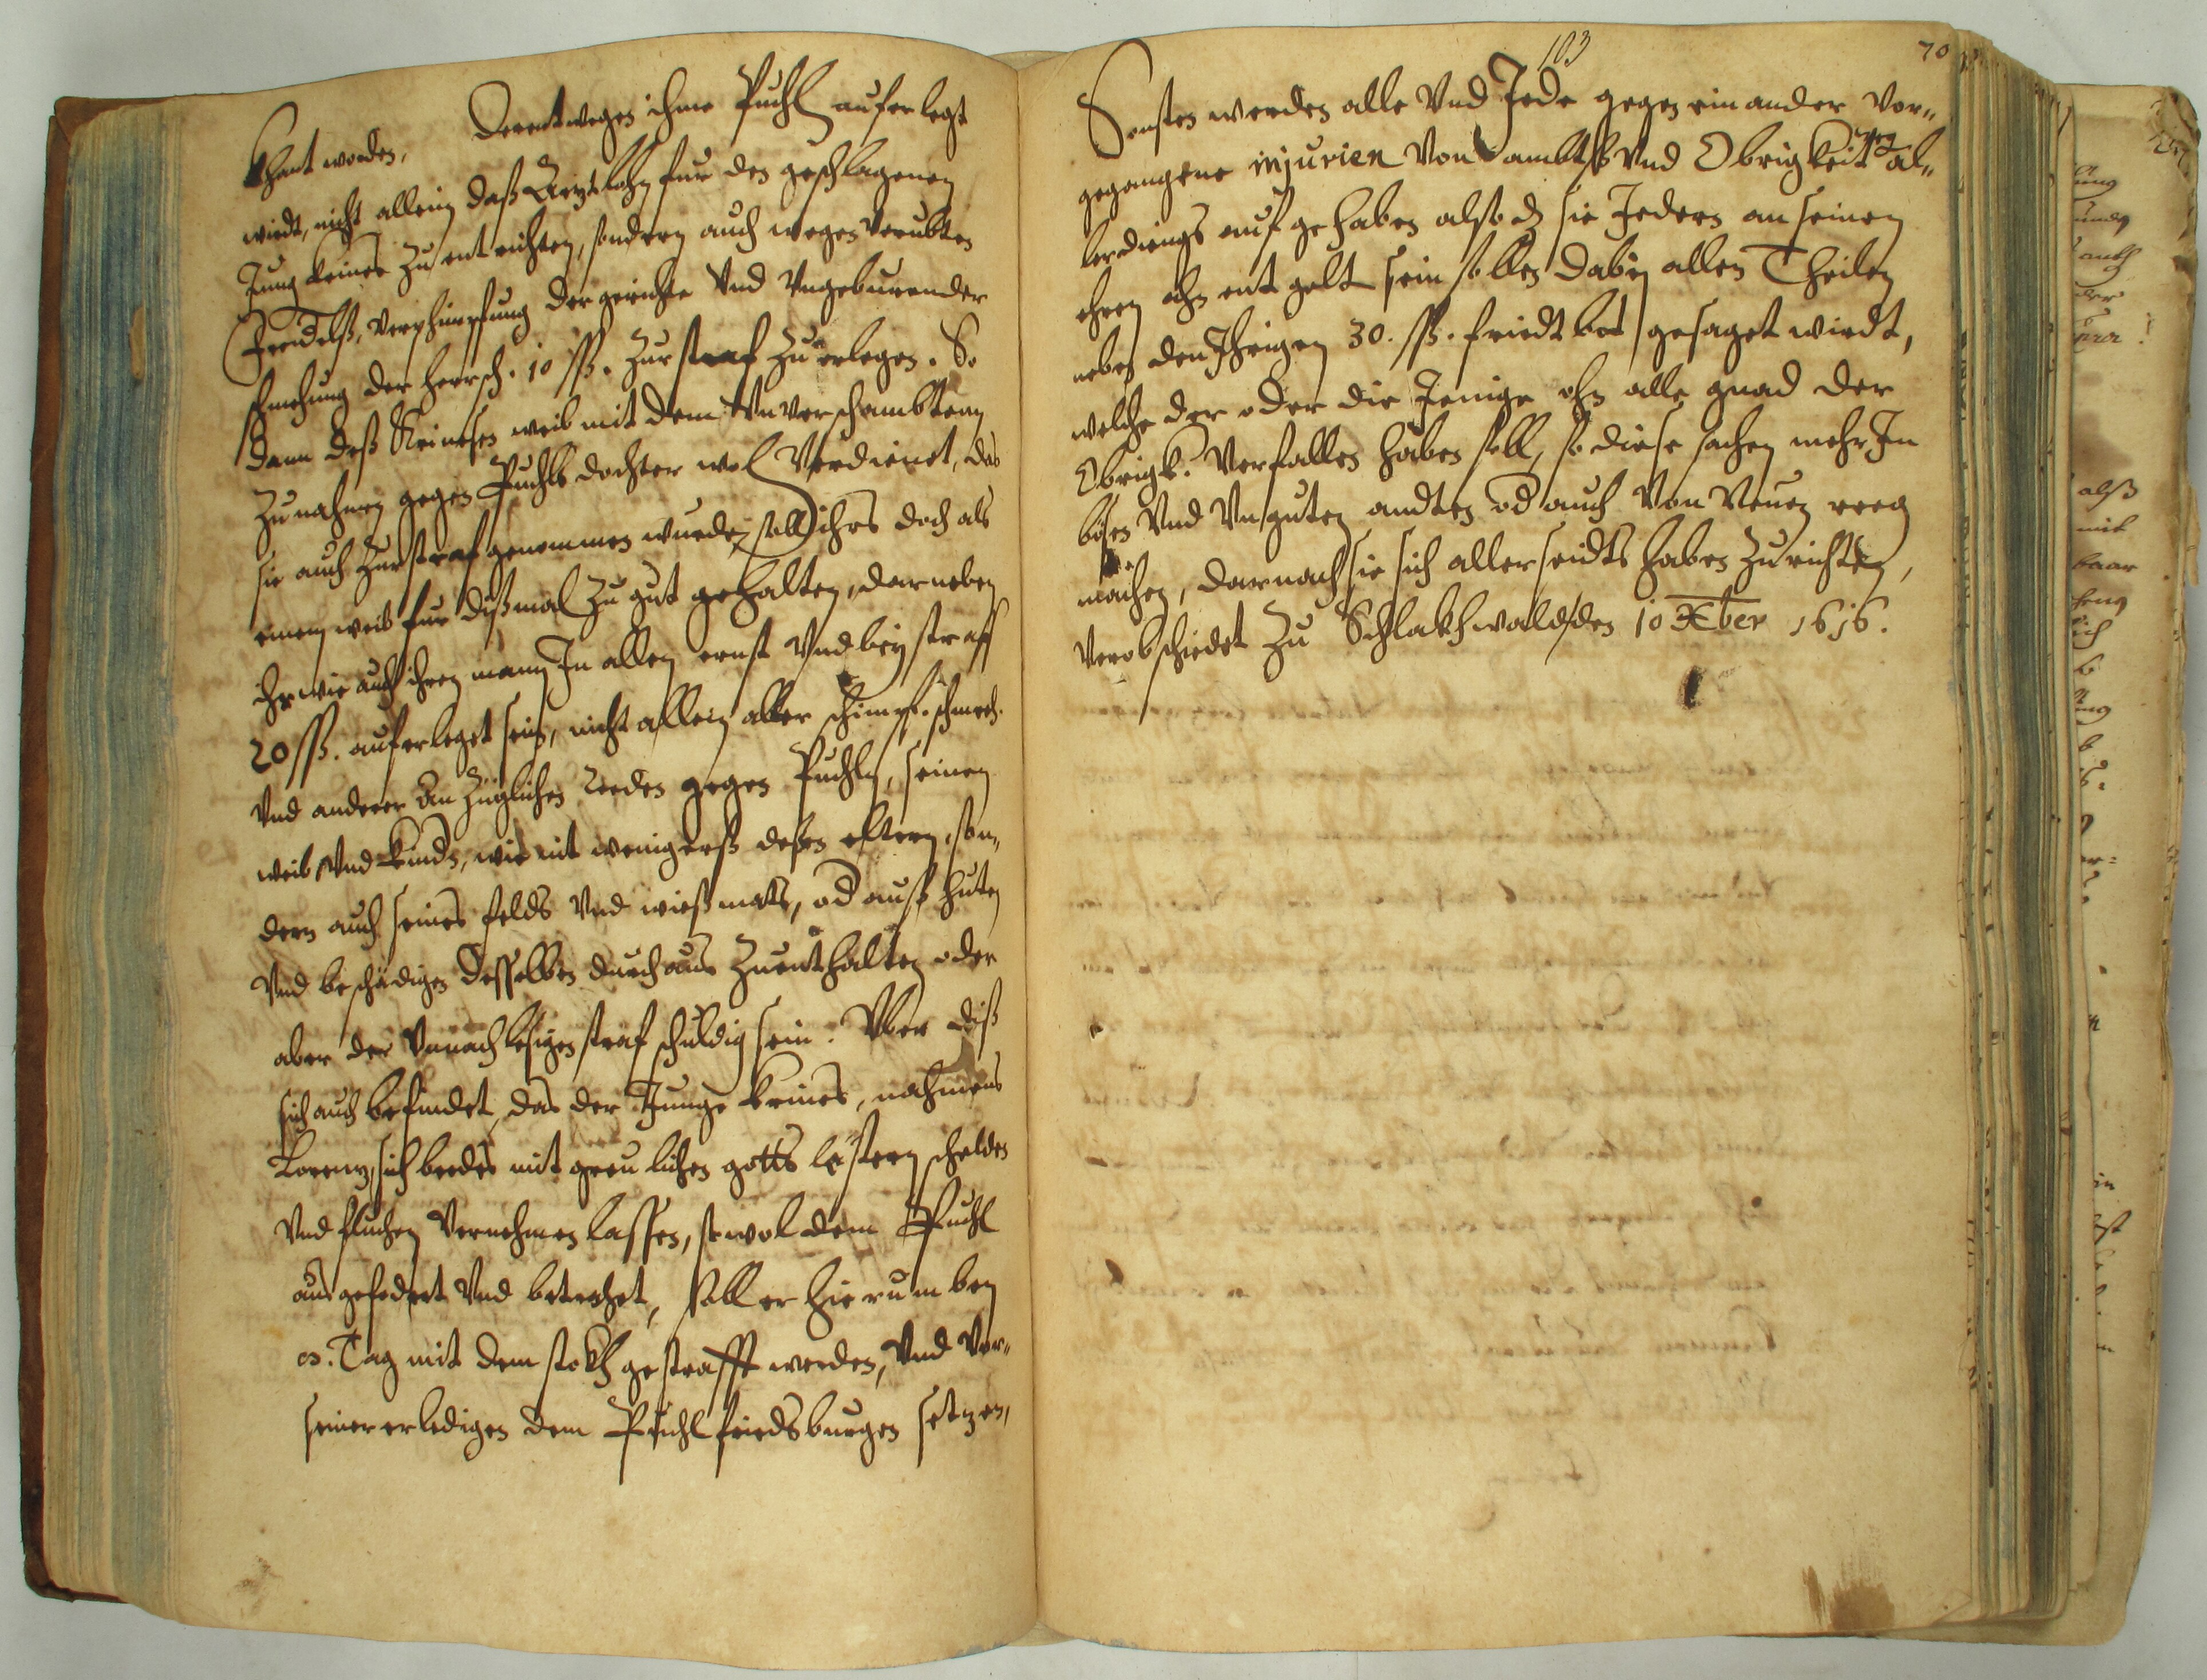 khant worden, Derentwegen ihme Puchl auferlegt
wirdt, nicht allein daß Arztlohn fur den geschlagenen
Jung Keines zu entrichten, sondern auch wegen verubten
Frevels, verschimpfung der gerichte Vnd Vngeburender
schmehung der herrsch. 10 ßß. zur straf zu erlegen. So
dann deß Keinesen weib mit dem Vnverschambtem
zunahmen gegen Puchls dochter wol Verdienet, das
sie auch zur straf genommen wurde, soll ihrs doch als
einem weib fur dißmal zu gut gehalten, darneben
ihr wie auch ihrem mann In allem ernst Vnd bey straff
20 ßß. auferleget sein, nicht allein aller schimpf. schmeh.
Vnd anderer An zuglichen Reden gegen Puchln, seinem
weib Vnd kindn, wie nit wenigers deßen eltern, son„
dern auch seines felds Vnd wießmats, od auß huten
Vnd beschedigen deßelben durchaus zu enthalten oder
aber der Vnnachlesigen straf schuldig sein. Vber diß
sich auch befindet, das der Junge Keines, nahmens
Lorenz, sich beedes mit greulichen gotts lestern schelden
Vnd fluchen Vernehmen lassen, so wol dem Puchl
aus gefodert Vnd betrohet, soll er hierumben
Tag mit dem stokh gestrafft werden, Vnd Vor„
seiner erledigen dem Puchl friedsburgen setzen,
103
70
Sonsten werden alle Vnd Jede gegen einander vor„
gegangene injurien Von ambts Vnd Obrigkeit wegen al„
lerdings aufgehaben also dz sie Jedem an seinen
ehren ohn entgelt sein sollen dabey allen Theilen
neben den Ihrigen 30. ßß. friedt bot gesaget wirdt,
welche der oder die Jenige ohn alle gnad der
Obrigk. Verfallen haben soll, so diese sachen mehr In
bösen Vnd Vnguten andten od auch Von Neuen reeg
machen, darnach sie sich allerseidts haben zu richten,
Verobschiedet zu Schlakhwald den 10 Xber 1616.